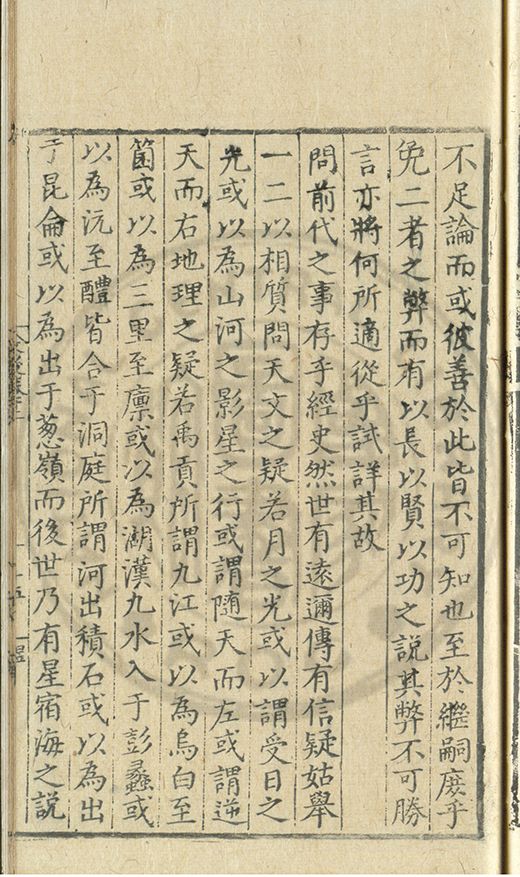 不足論而或彼善於此皆不可知也至於繼嗣庶乎
免二者之弊而有以長以賢以功之說其弊不可勝
言亦將何所適從乎試詳其故
問前代之事存乎經史然世有遠邇傳有信疑姑舉
一二以相質問天文之疑若月之光或以謂受日之
光或以為山河之影星之行或謂隨天而左或謂逆
天而右地理之疑若禹貢所謂九江或以為烏白至
箘或以為三里至廩或以為湖漢九水入于彭蠡或
以為沅至醴皆合于洞庭所謂河出積石或以為出
于昆侖或以為出于蔥嶺而後世乃有星宿海之說